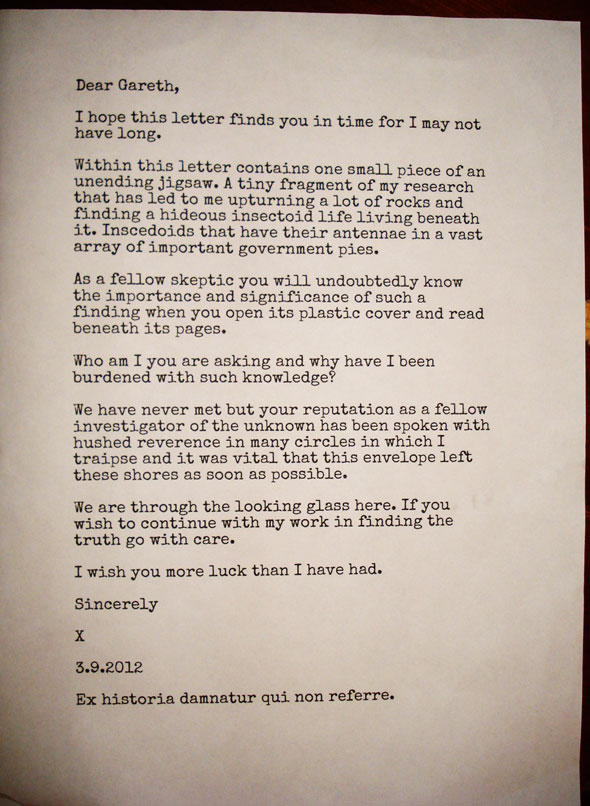 Dear Gareth,
I hope this letter finds you in time for I may not
have long.
Within this letter contains one small piece of an
unending jigsaw. A tiny fragment of my research
that has led to me upturning a lot of rocks and
finding a hideous insectoid life living beneath
it. Inscedoids that have their antennae in a vast
array of important government pies.
As a fellow skeptic you will undoubtedly know
the importance and significance of such a
finding when you open its plastic cover and read
beneath its pages.
Who am I you are asking and why have I been
burdened with such knowledge?
We have never met but your reputation as a fellow
investigator of the unknown has been spoken with
hushed reverence in many circles in which I
traipse and it was vital that this envelope left
these shores as soon as possible.
We are through the looking glass here. If you
wish to continue with my work in finding the
truth go with care.
I wish you more luck than I have had.
Sincerely
X
3.9.2012
Ex historia damnatur qui non referre.